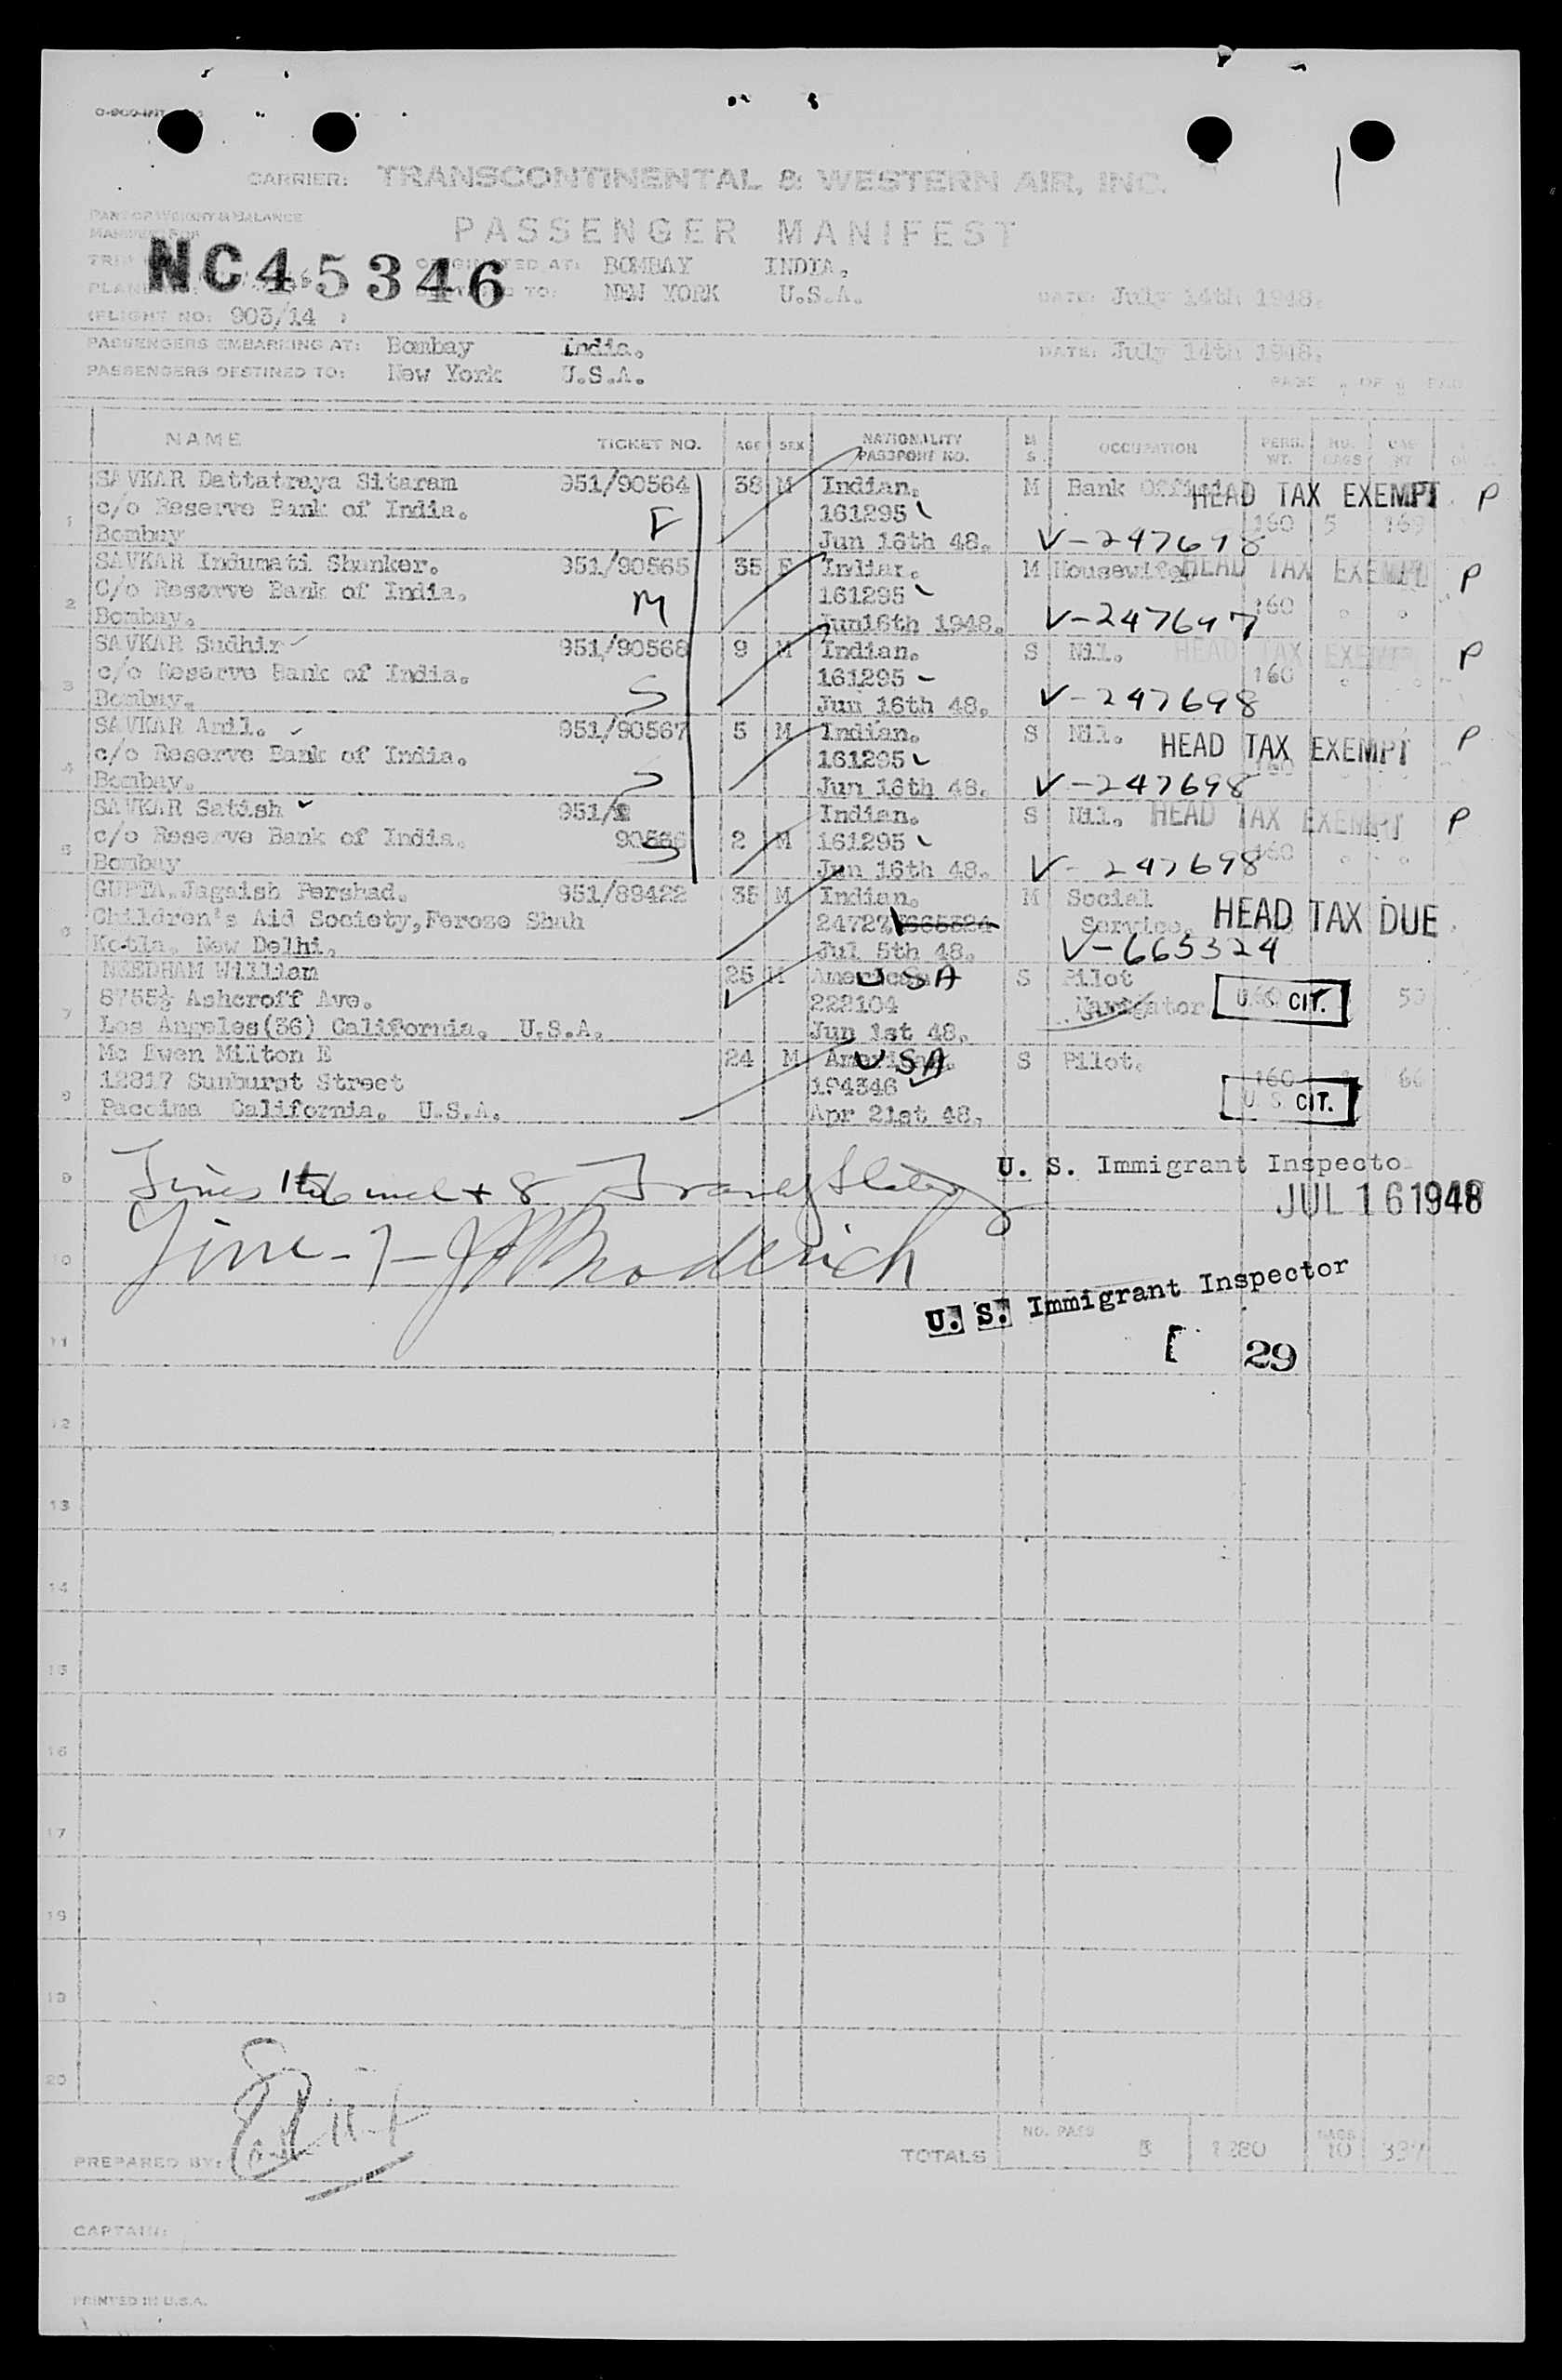 CARRIER: TRANSCONTINENTAL & WESTERN AIR, INC.
PART OF WEIGHT & BALANCE
PASSENGER MANIFEST
NC45346
ORIGINATED AT: BOMBAY INDIA.
DESTINED TO: NEW YORK U.S.A.
DATE: July 14th 1948.
(FLIGHT NO: 903/14 )
PASSENGERS EMBARKING AT: Bombay India.
DATE: July 14th 1948.
PASSENGERS DESTINED TO: New York U.S.A.
PAGE OF
NAME TICKET NO. AGE SEX NATIONALITY PASSPORT NO. M S OCCUPATION PERS. WT. NO. BAGS
SAVKAR Dattatraya Sitaram 951/90564 38 M Indian. M Bank HEAD TAX EXEMPT P
c/o Reserve Bank of India. F 161295 160 5 169
1 Bombay Jun 16th 48. V-247698
SAVKAR Indumati Shunker. 951/90565 35 F Indian. M Housewife HEAD TAX EXEMPT P
C/o Reserve Bank of India. M 161295 160
2 Bombay. Jun16th 1948. V-247697
SAVKAR Sudhir 951/90568 9 M Indian. S Nil. HEAD TAX EXEMPT P
c/o Reserve Bank of India. 161295 160
3 Bombay. S Jun 16th 48. V-247698
SAVKAR Anil. 951/90567 5 M Indian. S Nil. HEAD TAX EXEMPT P
c/o Reserve Bank of India. 161295
4 Bombay. S Jun 16th 48. V-247698
SAVKAR Satish 951/ Indian. S Nil. HEAD TAX EXEMPT P
c/o Reserve Bank of India. 90566 2 M 161295
5 Bombay S Jun 16th 48. V-247698 160
GUPTA.Jagaish Pershad. 951/89422 35 M Indian. M Social
Children's Aid Society,Feroze Shah 24727 665324 Service. HEAD TAX DUE
6 Kotla. New Delhi. Jul 5th 48. V-665324
NEEDHAM William 25 M American USA S Pilot
8755½ Ashcroff Ave. 222104 Navigator U.S. CIT.
7 Los Angeles(36) California. U.S.A. Jun 1st 48.
Mc Ewen Milton E 24 M American. USA S Pilot.
12817 Sunburst Street 194346 160 66
8 Pacoima California. U.S.A. Apr 21st 48. U.S. CIT.
9 Lines 1 to 6 incl + 8 U. S. Immigrant Inspector
JUL 16 1948
10 Line - 7 - Broderick
U. S. Immigrant Inspector
11 29
12
13
14
15
16
17
18
19
20
TOTALS NO. PASS 8 1280 BAGS 10
PREPARED BY:
CAPTAIN:
PRINTED IN U.S.A.